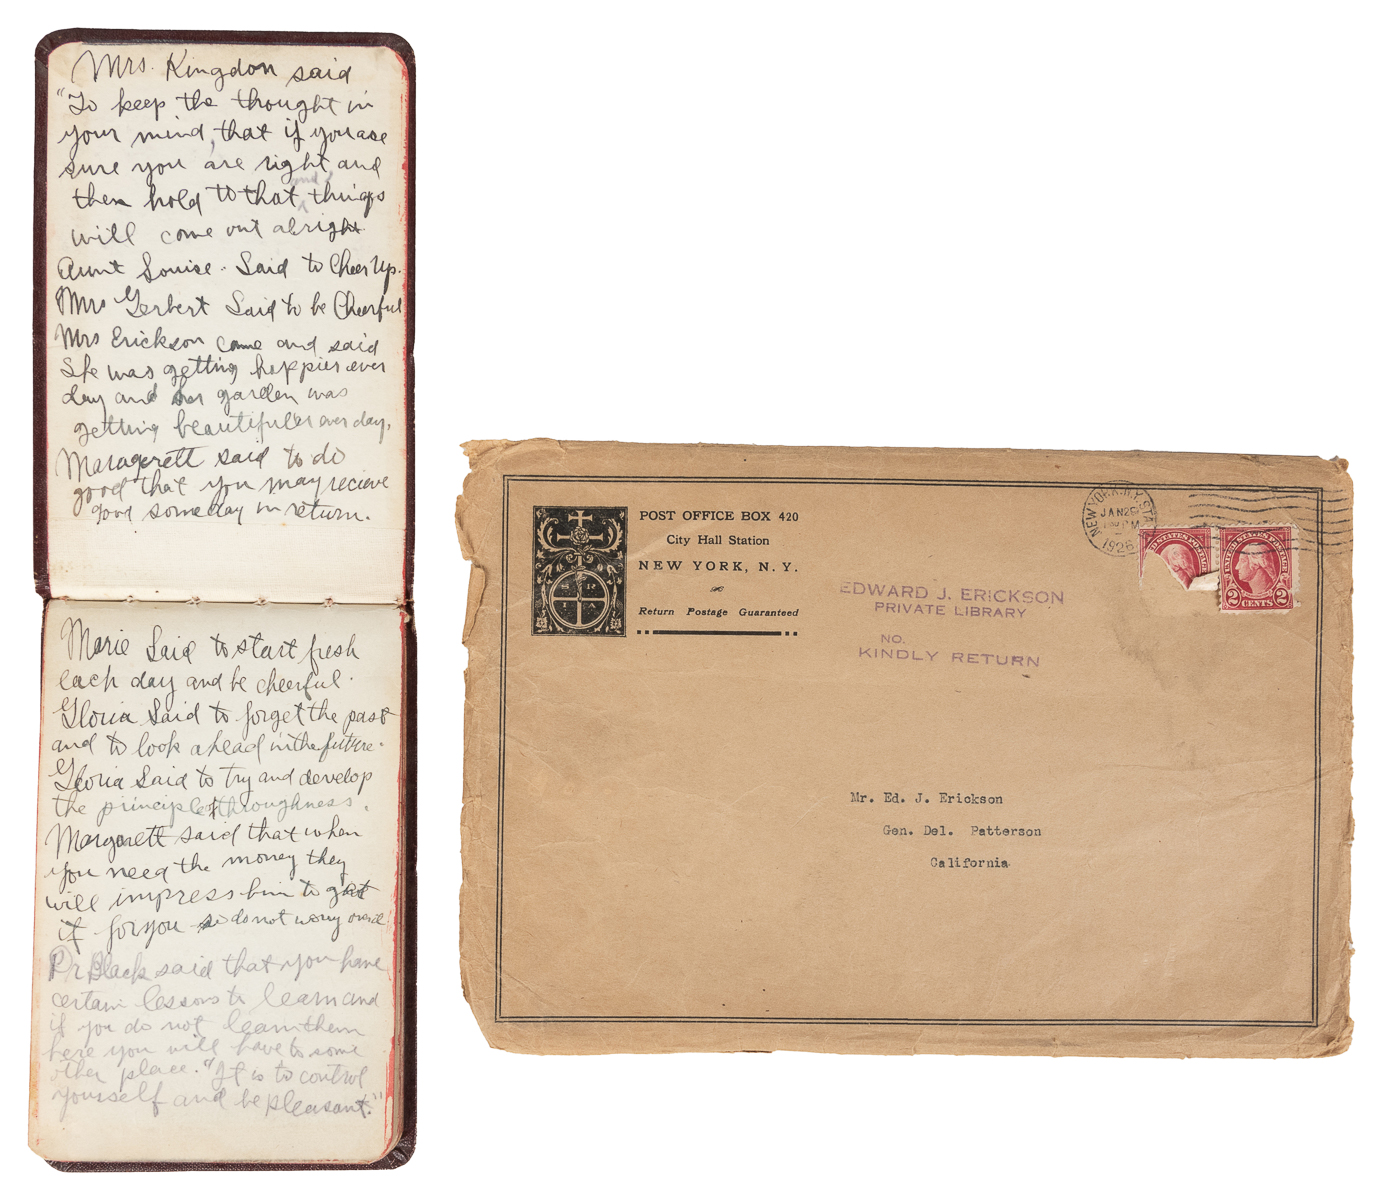 Mrs. Kingdon said
"To keep the thought in
your mind, that if you are
sure you are right and
then hold to that things
will come out alright
Aunt Louise. Said to Cheer Up.
Mrs Gerbert Said to be Cheerful
Mrs Erickson came and said
She was getting happier ever
day and her garden was
getting beautifuler ever day,
Maragerett said to do
good that you may recieve
good someday in return.
Marie Said to start fresh
each day and be cheerful.
Gloria Said to forget the past
and to look ahead in the future.
Gloria Said to try and develop
the principle of throughness.
Margarett said that when
you need the money they
will impress him to
it for you so do not worry
Dr Black said that you have
certain lessons to learn and
if you do not learn them
here you will have to some
other place. "It is to control
yourself and be pleasant."
POST OFFICE BOX 420
City Hall Station
NEW YORK, N. Y.
Return Postage Guaranteed
EDWARD J. ERICKSON
PRIVATE LIBRARY
NO.
KINDLY RETURN
NEW YORK, N.Y. STA
JAN 26
PM
1926
UNITED STATES POSTAGE
UNITED STATES POSTAGE
2 CENTS 2
Mr. Ed. J. Erickson
Gen. Del. Patterson
California